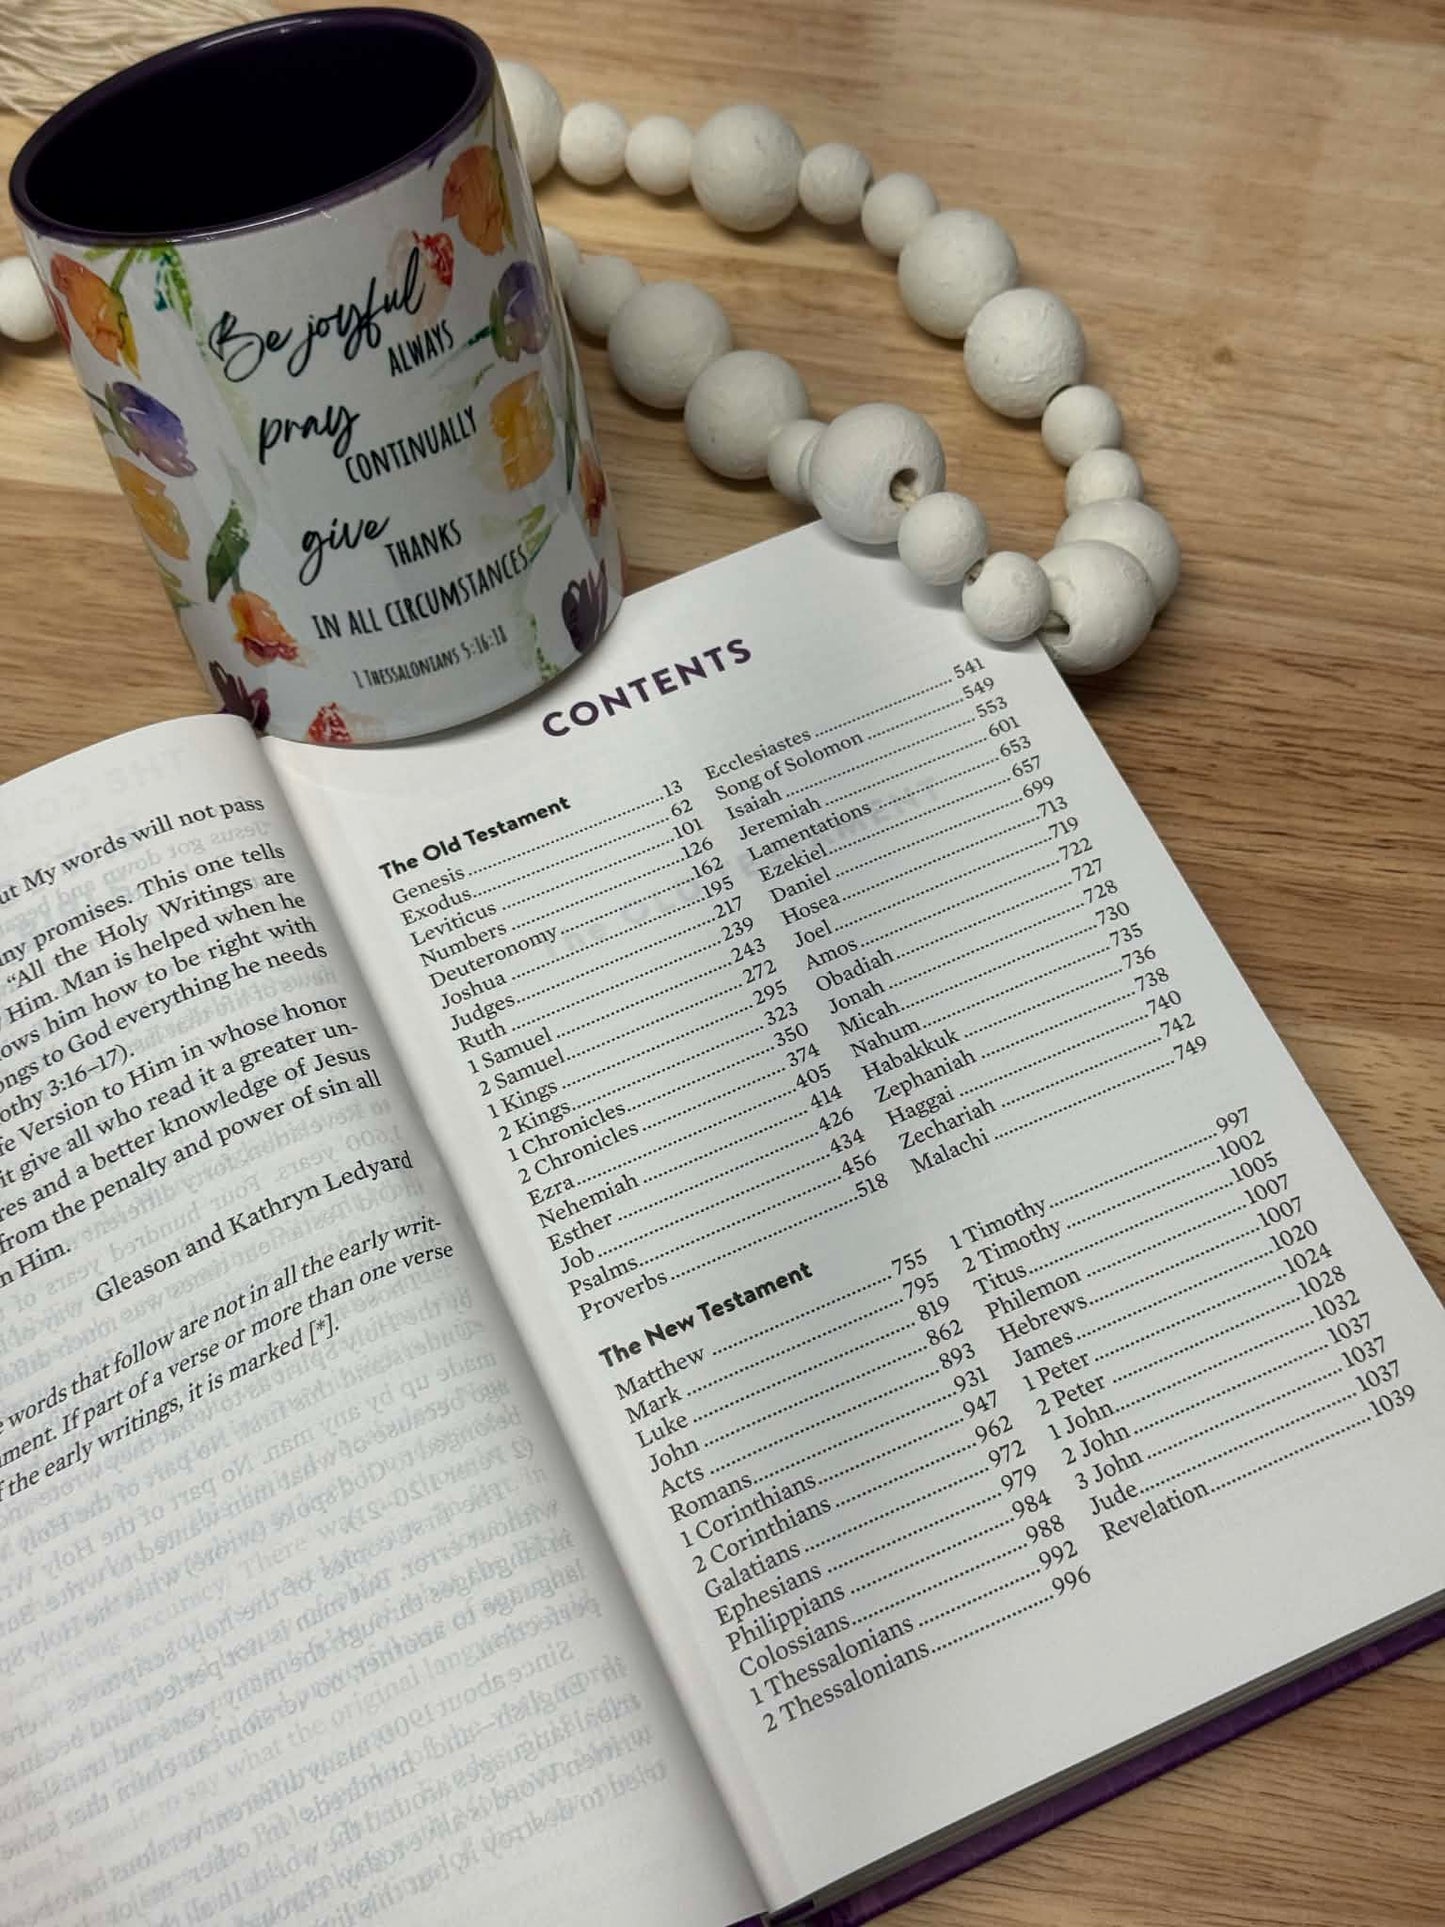 Be joyful
ALWAYS
pray
CONTINUALLY
give
THANKS
IN ALL CIRCUMSTANCES
1 THESSALONIANS 5:16-18
My words will not pass
promises. This one tells
"All the Holy Writings are
Him. Man is helped when he
him how to be right with
to God everything he needs
3:16–17).
Version to Him in whose honor
it give all who read it a greater un-
and a better knowledge of Jesus
from the penalty and power of sin all
Him.
Gleason and Kathryn Ledyard
words that follow are not in all the early writ-
If part of a verse or more than one verse
the early writings, it is marked [*].
CONTENTS
The Old Testament
Genesis 13
Exodus 62
Leviticus 101
Numbers 126
Deuteronomy 162
Joshua 195
Judges 217
Ruth 239
1 Samuel 243
2 Samuel 272
1 Kings 295
2 Kings 323
1 Chronicles 350
2 Chronicles 374
Ezra 405
Nehemiah 414
Esther 426
Job 434
Psalms 456
Proverbs 518
Ecclesiastes 541
Song of Solomon 549
Isaiah 553
Jeremiah 601
Lamentations 653
Ezekiel 657
Daniel 699
Hosea 713
Joel 719
Amos 722
Obadiah 727
Jonah 728
Micah 730
Nahum 735
Habakkuk 736
Zephaniah 738
Haggai 740
Zechariah 742
Malachi 749
The New Testament
Matthew 755
Mark 795
Luke 819
John 862
Acts 893
Romans 931
1 Corinthians 947
2 Corinthians 962
Galatians 972
Ephesians 979
Philippians 984
Colossians 988
1 Thessalonians 992
2 Thessalonians 996
1 Timothy 997
2 Timothy 1002
Titus 1005
Philemon 1007
Hebrews 1007
James 1020
1 Peter 1024
2 Peter 1028
1 John 1032
2 John 1037
3 John 1037
Jude 1037
Revelation 1039